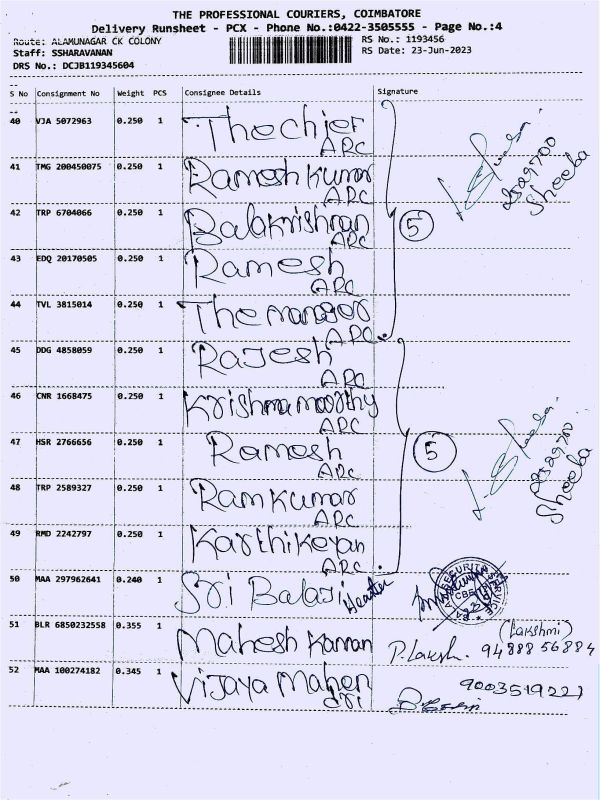 THE PROFESSIONAL COURIERS, COIMBATORE
Delivery Runsheet - PCX - Phone No.:0422-3505555 - Page No.:4
Route: ALAMUNAGAR CK COLONY RS No.: 1193456
Staff: SSHARAVANAN RS Date: 23-Jun-2023
DRS No.: DCJB119345604
S No Consignment No Weight PCS Consignee Details Signature
40 VJA 5072963 0.250 1 The chief
ARC
41 TMG 200450075 0.250 1 Ramesh kumar
ARC
42 TRP 6704066 0.250 1 Balakrishnan
ARC
43 EDQ 20170505 0.250 1 Ramesh
ARC
44 TVL 3815014 0.250 1 The manager
ARC
5
Sheeba
45 DDG 4858059 0.250 1 Rajesh
ARC
46 CNR 1668475 0.250 1 Krishnamoorthy
ARC
47 HSR 2766656 0.250 1 Ramesh
ARC
48 TRP 2589327 0.250 1 Ramkumar
ARC
49 RMD 2242797 0.250 1 Karthikeyan
ARC
5
Sheeba
50 MAA 297962641 0.240 1 Sri Balaji
SECURITY SERVICE
CBE
51 BLR 6850232558 0.355 1 Mahesh Kannan P. Laksh. (Lakshmi)
94888 56884
52 MAA 100274182 0.345 1 Vijaya Mahen
dri
9003519221